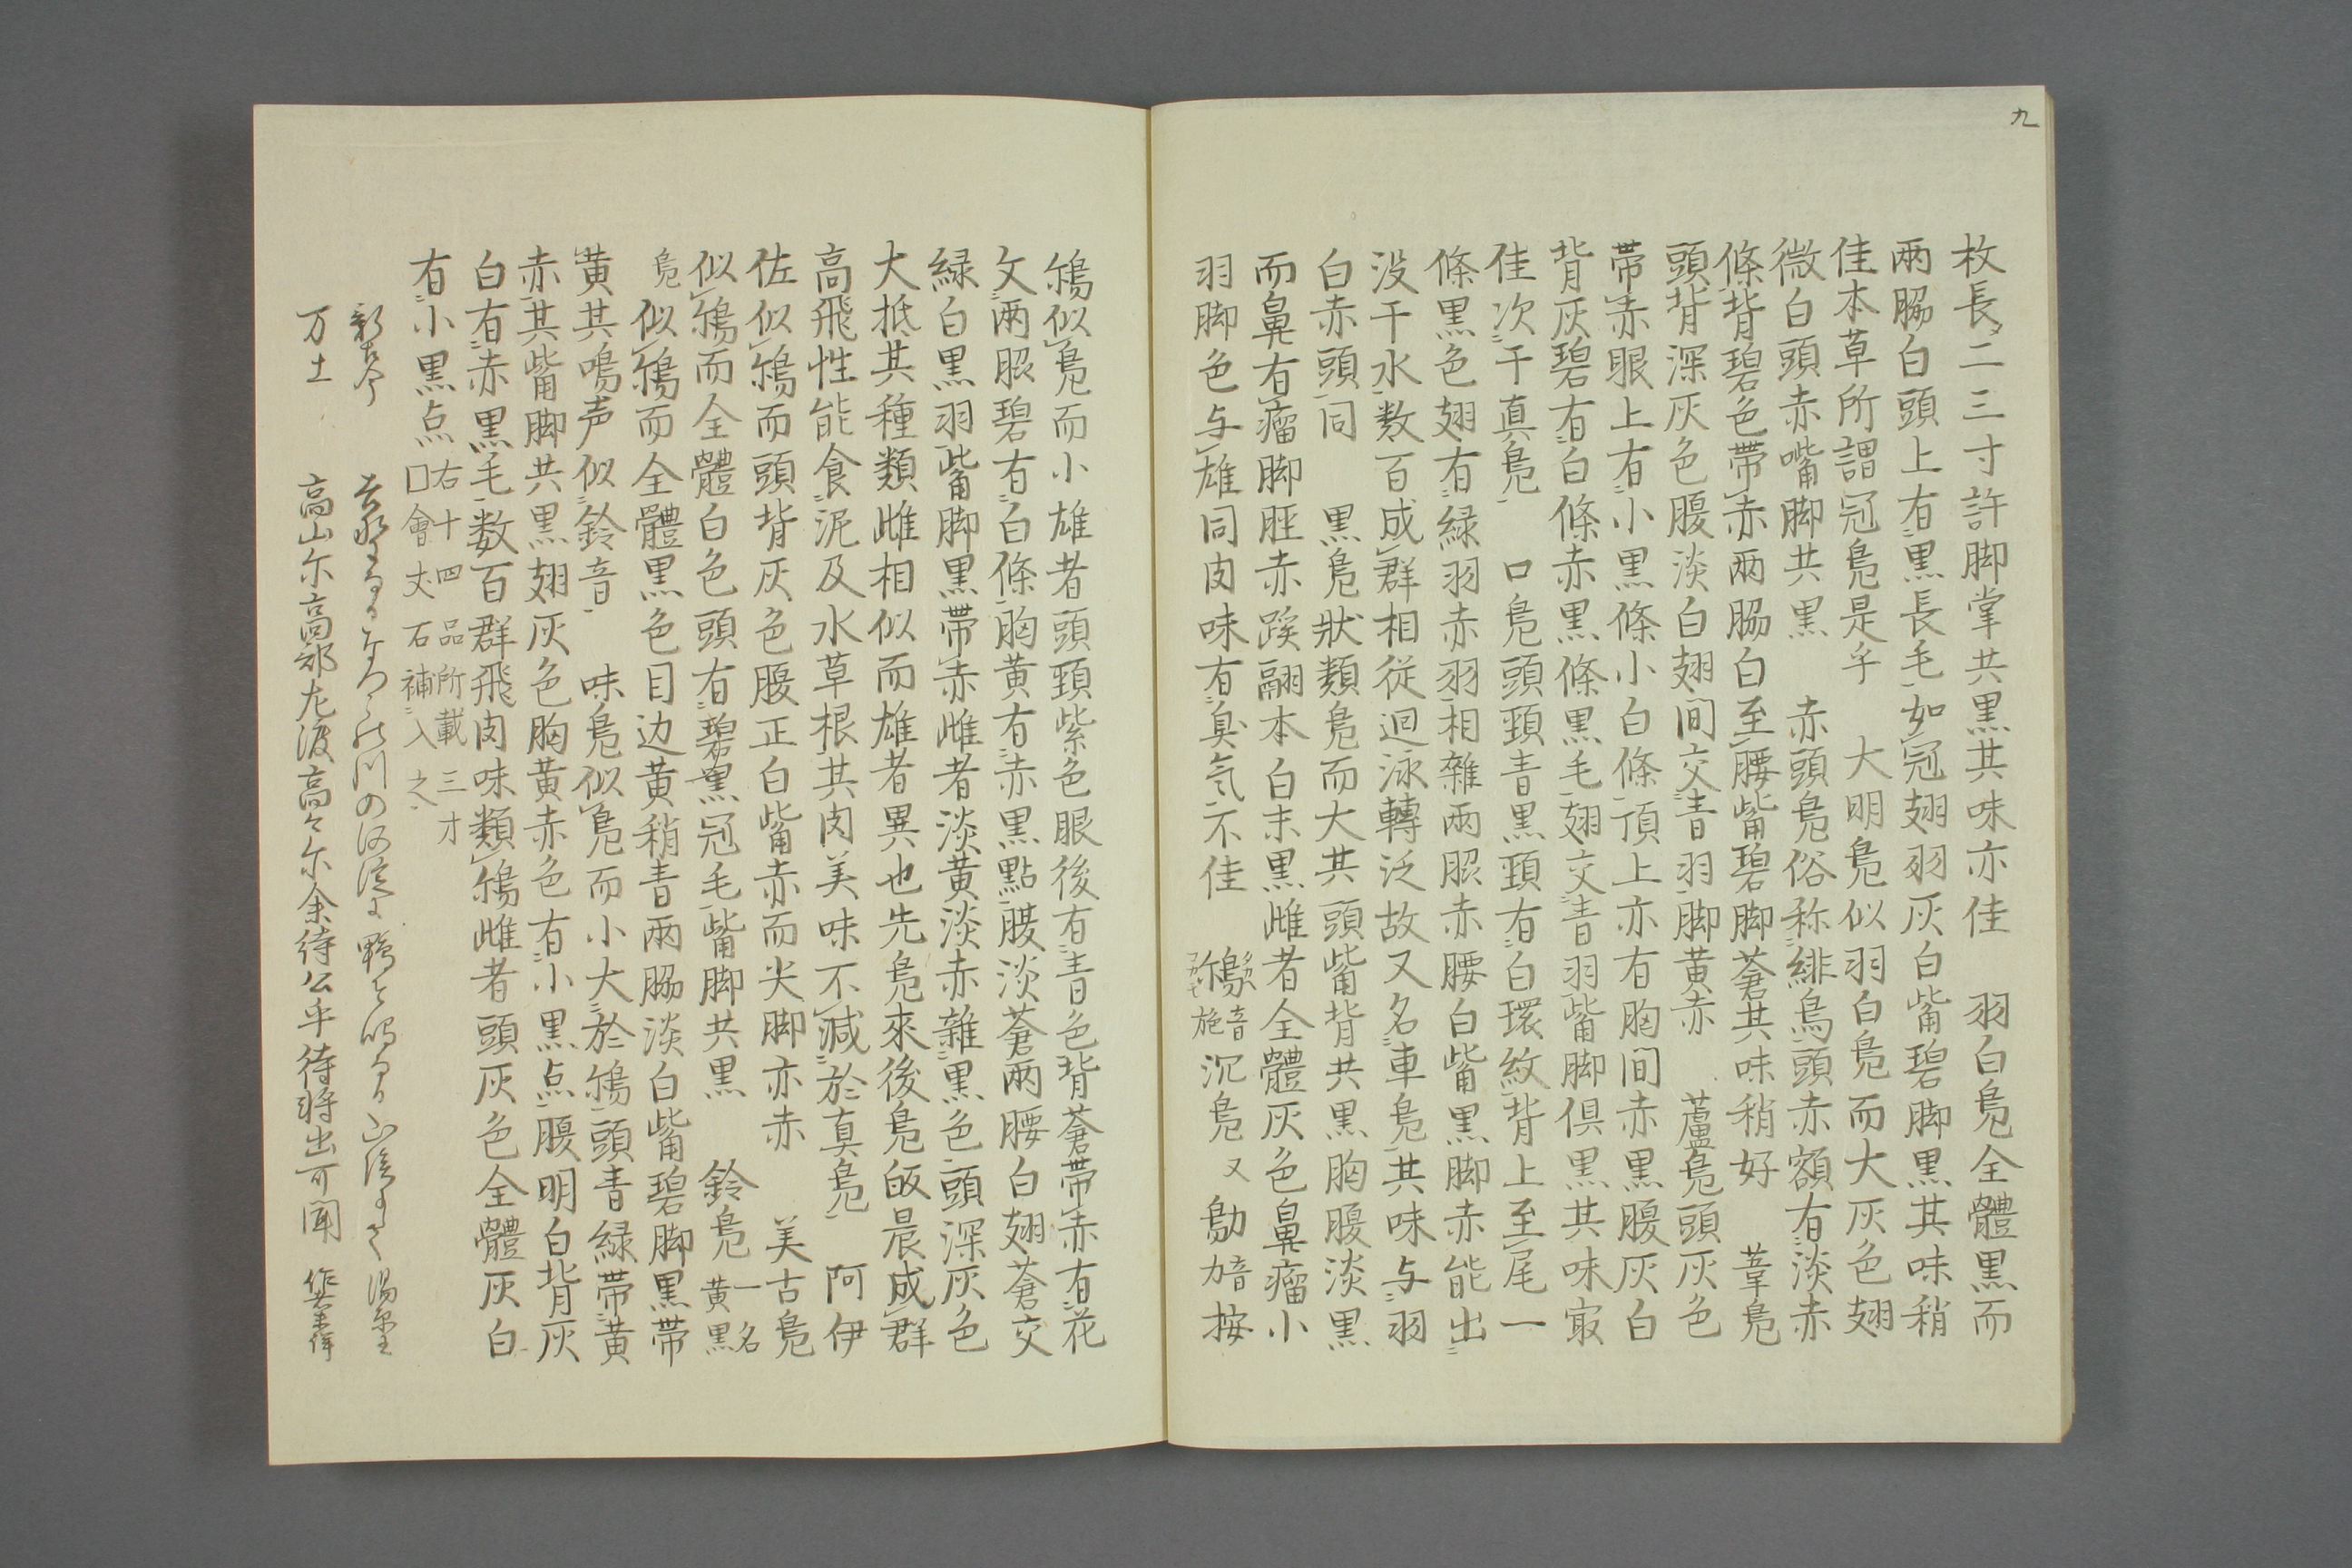 九
枚長二三寸許脚掌共黒其味亦佳　羽白鳧全體黒而
両脇白頭上有黒長毛如冠翅羽灰白觜碧脚黒其味稍
佳本草所謂冠鳧是乎　大明鳧似羽白鳧而大灰色翅
微白頭赤嘴脚共黒　赤頭鳧俗称緋鳥頭赤額有淡赤
條背碧色帶赤両脇白至腰觜碧脚蒼其味稍好　葦鳧
頭背深灰色腹淡白翅間交青羽脚黄赤　蘆鳧頭灰色
帶赤眼上有小黒條小白條頂上亦有胸間赤黒腹灰白
背灰碧有白條赤黒條黒毛翅交青羽觜脚倶黒其味冣
佳次于真鳧　口鳧頭頸青黒頸有白環紋背上至尾一
條黒色翅有緑羽赤羽相雜両脇赤腰白觜黒脚赤能出
没于水数百成群相従迴泳轉泛故又名車鳧其味与羽
白赤頭同　黒鳧状類鳧而大其頭觜背共黒胸腹淡黒
而鼻有瘤脚脛赤蹼翮本白末黒雌者全體灰色鼻瘤小
羽脚色与雄同肉味有臭気不佳　鸍音施沉鳧又㔜力音按
鸍似鳧而小雄者頭頸紫色眼後有青色背蒼帶赤有花
文両脇碧有白條胸黄有赤黒點腹淡蒼両腰白翅蒼交
緑白黒羽觜脚黒帶赤雌者淡黄淡赤雜黒色頭深灰色
大抵其種類雌相似而雄者異也先鳧來後鳧皈晨成群
高飛性能食泥及水草根其肉美味不減於真鳧　阿伊
佐似鸍而頭背灰色腹正白觜赤而尖脚亦赤　美古鳧
似鸍而全體白色頭有碧黒冠毛觜脚共黒　鈴鳧一名黄黒
鳧似鸍而全體黒色目边黄稍青両脇淡白觜碧脚黒帶
黄其鳴声似鈴音　味鳧似鳧而小大於鸍頭青緑帶黄
赤其觜脚共黒翅灰色胸黄赤色有小黒点腹明白背灰
白有赤黒毛数百群飛肉味類鸍雌者頭灰色全體灰白
有小黒点右十四品所載三才
口會丈石補入之
新古今　川の
万士　高山尓高部左渡高々尓余待公乎待将出可聞